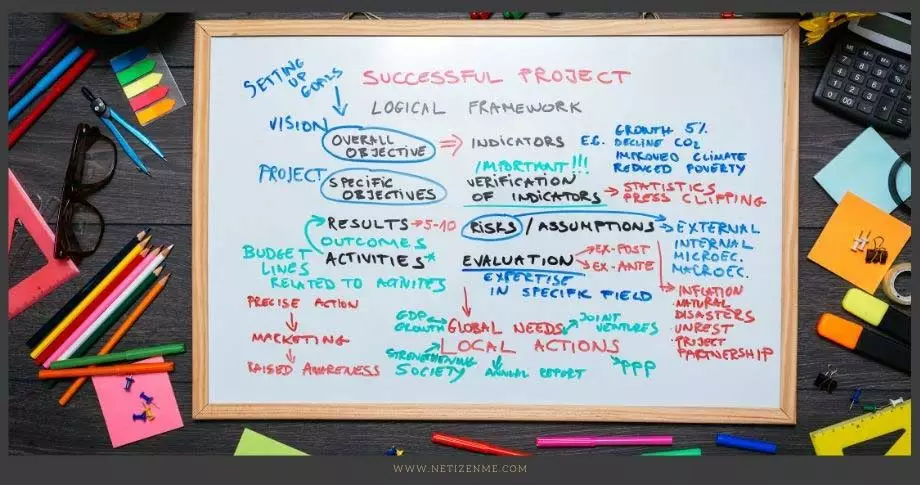 SETTING
UP
GOALS
SUCCESSFUL PROJECT
LOGICAL FRAMEWORK
VISION
OVERALL
OBJECTIVE
INDICATORS E.G.
GROWTH 5%
DECLINE CO2
IMPROVED CLIMATE
REDUCED POVERTY
PROJECT
SPECIFIC
OBJECTIVES
IMPORTANT!!!
VERIFICATION
OF INDICATORS
STATISTICS
PRESS CLIPPING
RESULTS → 5-10
OUTCOMES
ACTIVITIES*
RISKS / ASSUMPTIONS
EXTERNAL
INTERNAL
MICROEC.
MACROEC.
BUDGET
LINES
RELATED TO ACTIVITES
EVALUATION
EX-POST
EX-ANTE
EXPERTISE
IN SPECIFIC FIELD
INFLATION
NATURAL
DISASTERS
UNREST
PROJECT
PARTNERSHIP
PRECISE ACTION
MARKETING
RAISED AWARENESS
GDP
GROWTH
GLOBAL NEEDS
LOCAL ACTIONS
JOINT
VENTURES
STRENGTHENING
SOCIETY
ANNUAL REPORT
PPP
WWW.NETIZENME.COM